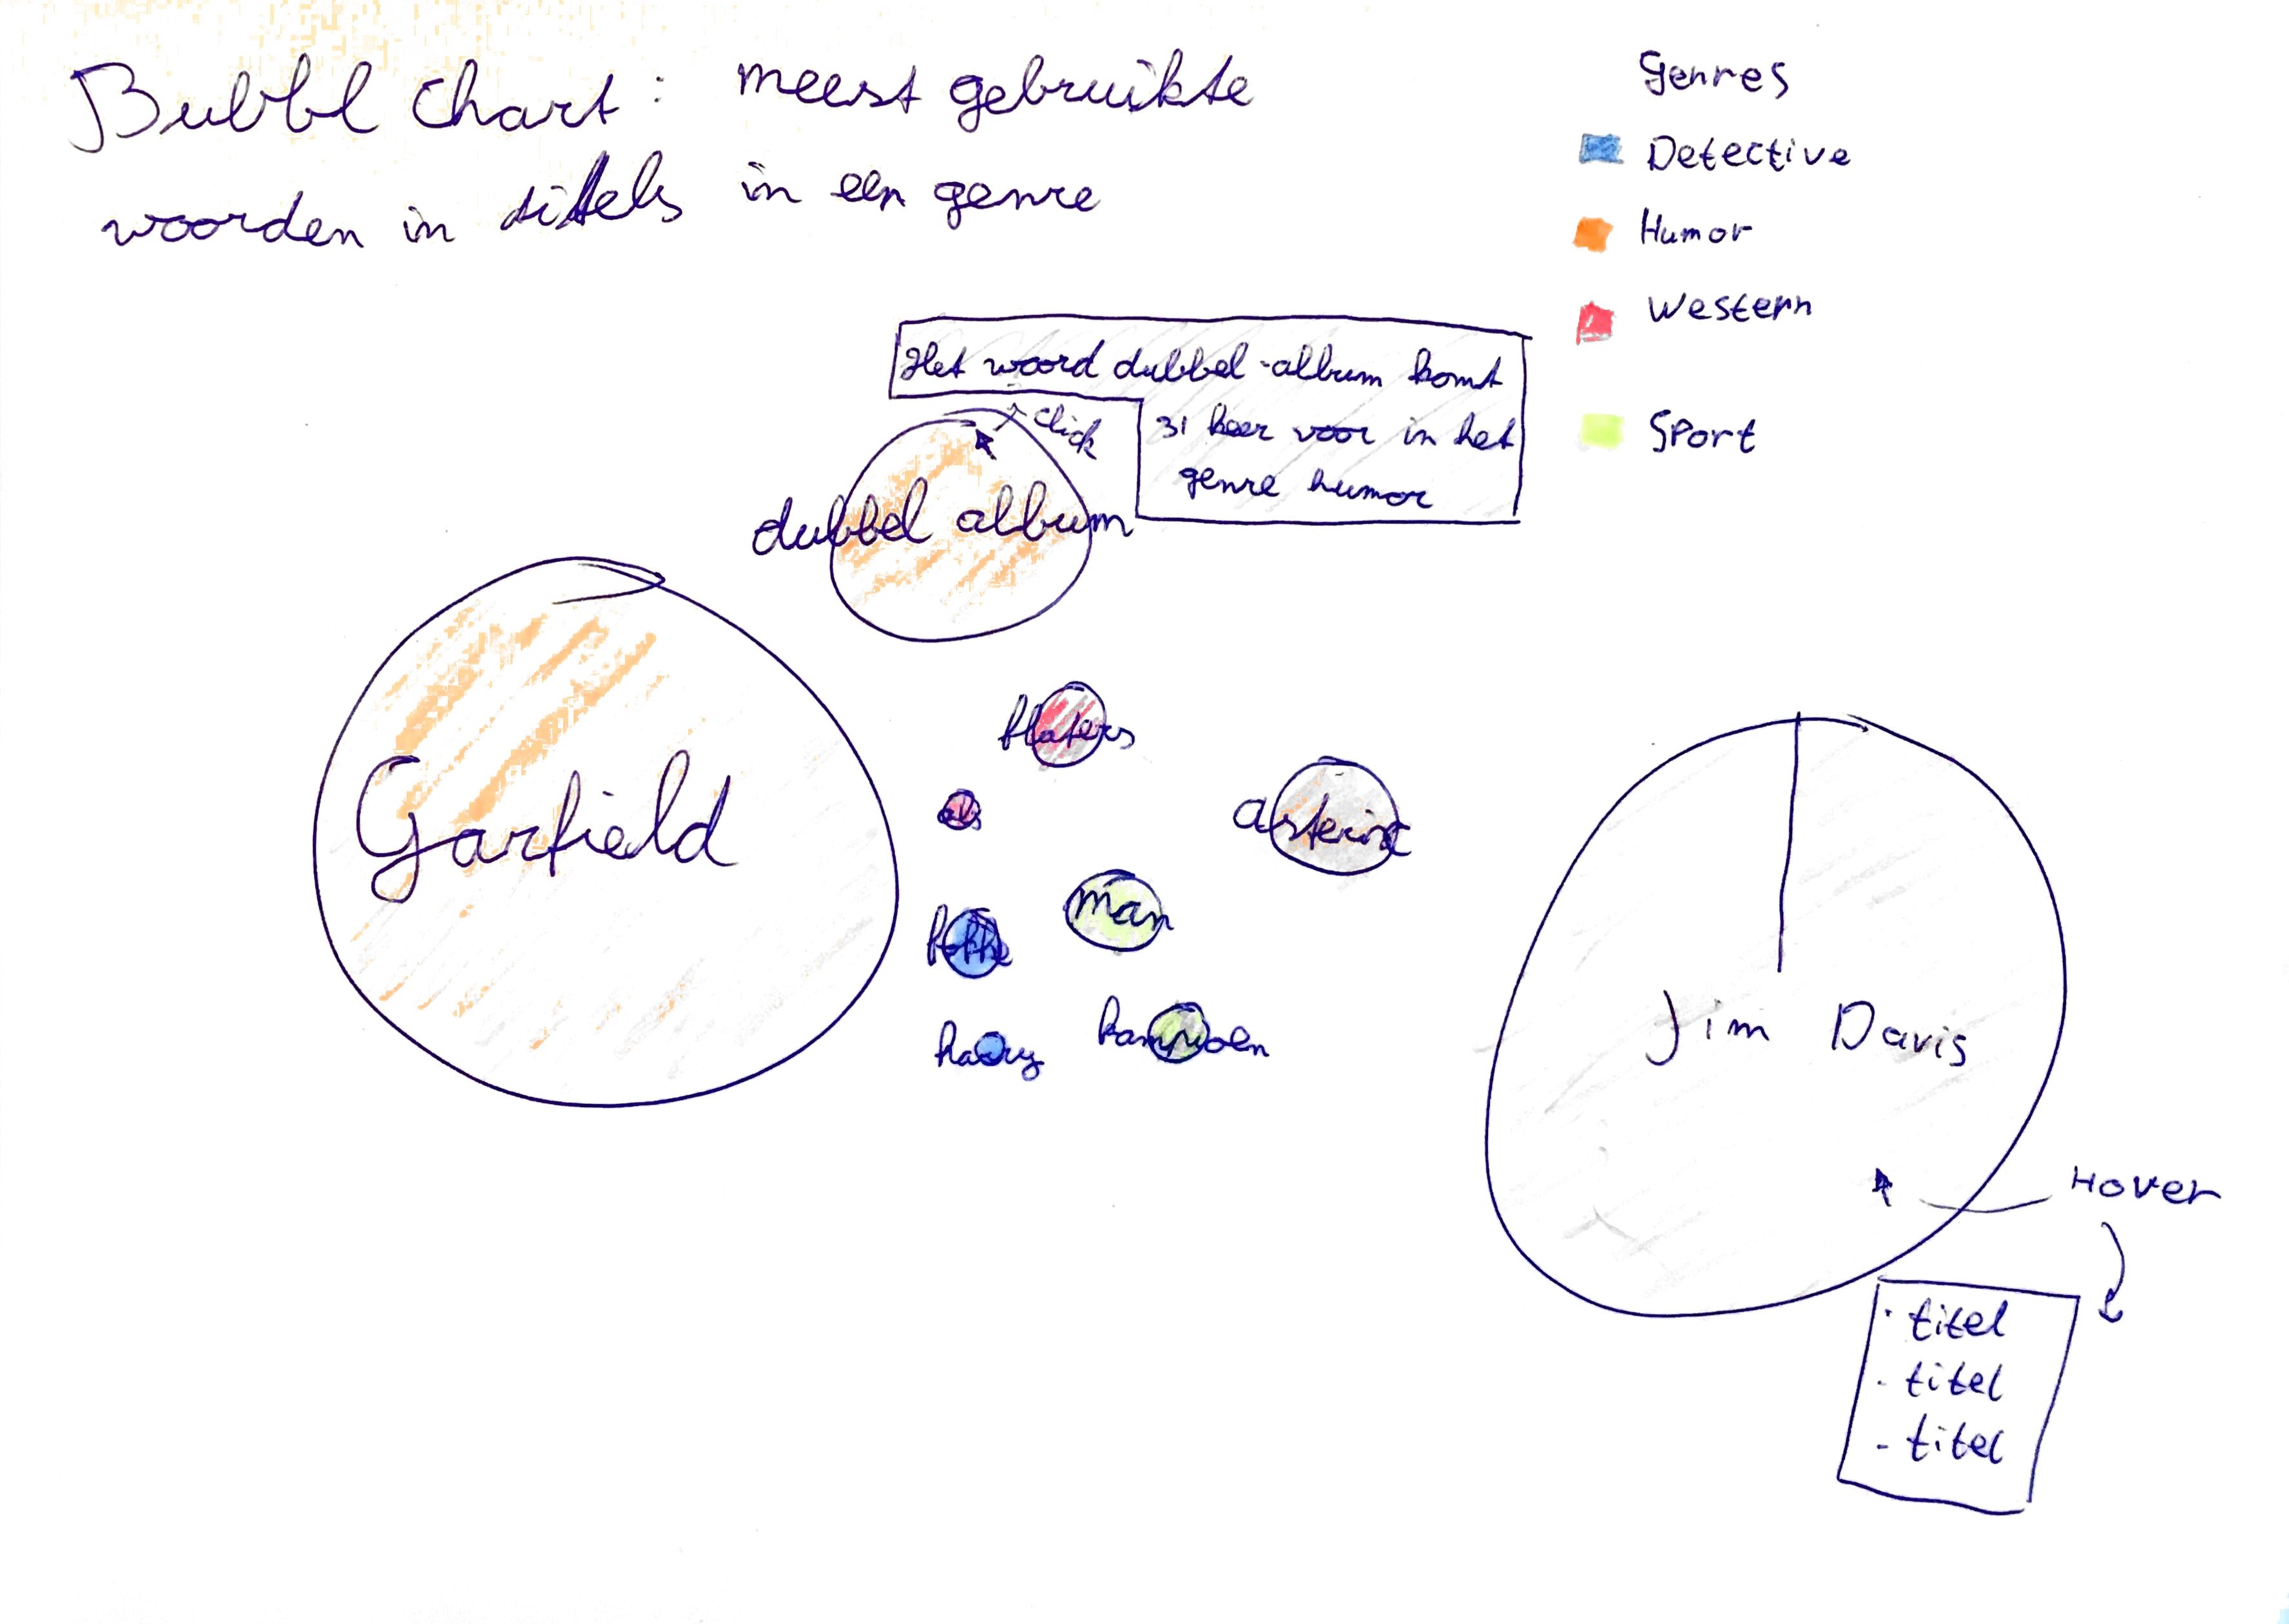 Bubbl Chart: meest gebruikte
woorden in titels in een genre
Genres
Detective
Humor
Western
Sport
Het woord dubbel-album komt
31 keer voor in het
genre humor
click
dubbel album
Garfield
blaters
als
asterix
man
fokke
harry
kampioen
Jim Davis
Hover
· titel
· titel
- titel